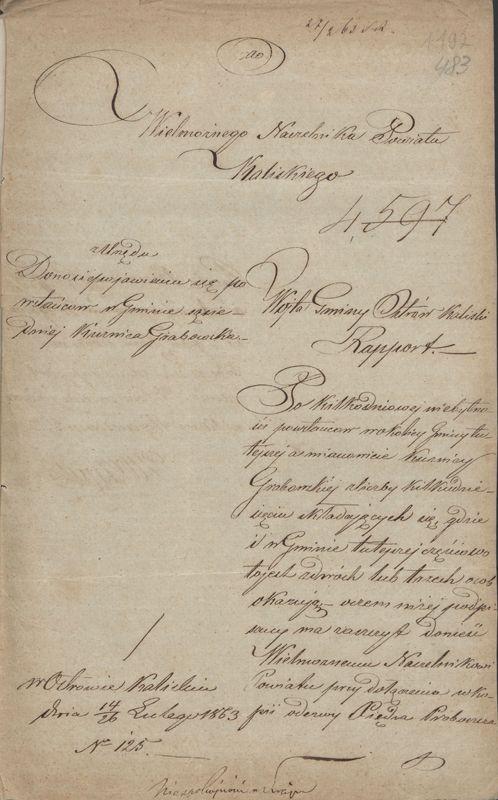 27/2 63
1192
483
do
Wielmożnego Naczelnika Powiatu
Kaliskiego
4,597
z Urzędu
Donosi o pojawieniu się po
wstańców w Gminie sąsie
dniej Kuźnica Grabowska.—
Wójt Gminy Ostrów Kaliski
Rapport.—
Po kilkodniowej niebytno
ści powstańców w okolicy Gminy tu
tejszej a mianowicie Kuźnicy
Grabowskiej z liczby kilkudzie-
sięciu składających się, gdzie
i w Gminie tutejszej częściowo
to jest z dwóch lub trzech osób
okazują, o czem niżej podpi
sany ma zaszczyt donieść
Wielmożnemu Naczelnikowi
Powiatu przy dołączeniu w ko-
pii odezwy Księdza Proboszcza
w Ostrowie Kaliskim
dnia 14/26 Lutego 1863
No 125.